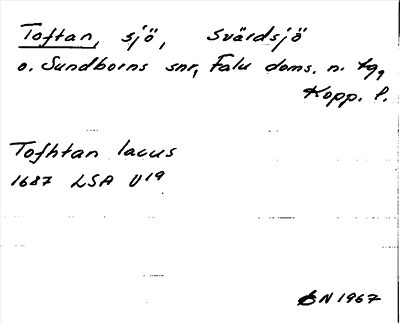 Toftan, sjö, Svärdsjö
o. Sundborns snr, Falu doms. n. tg,
Kopp. l.
Tofhtan lacus
1687 LSA U19
BN 1967